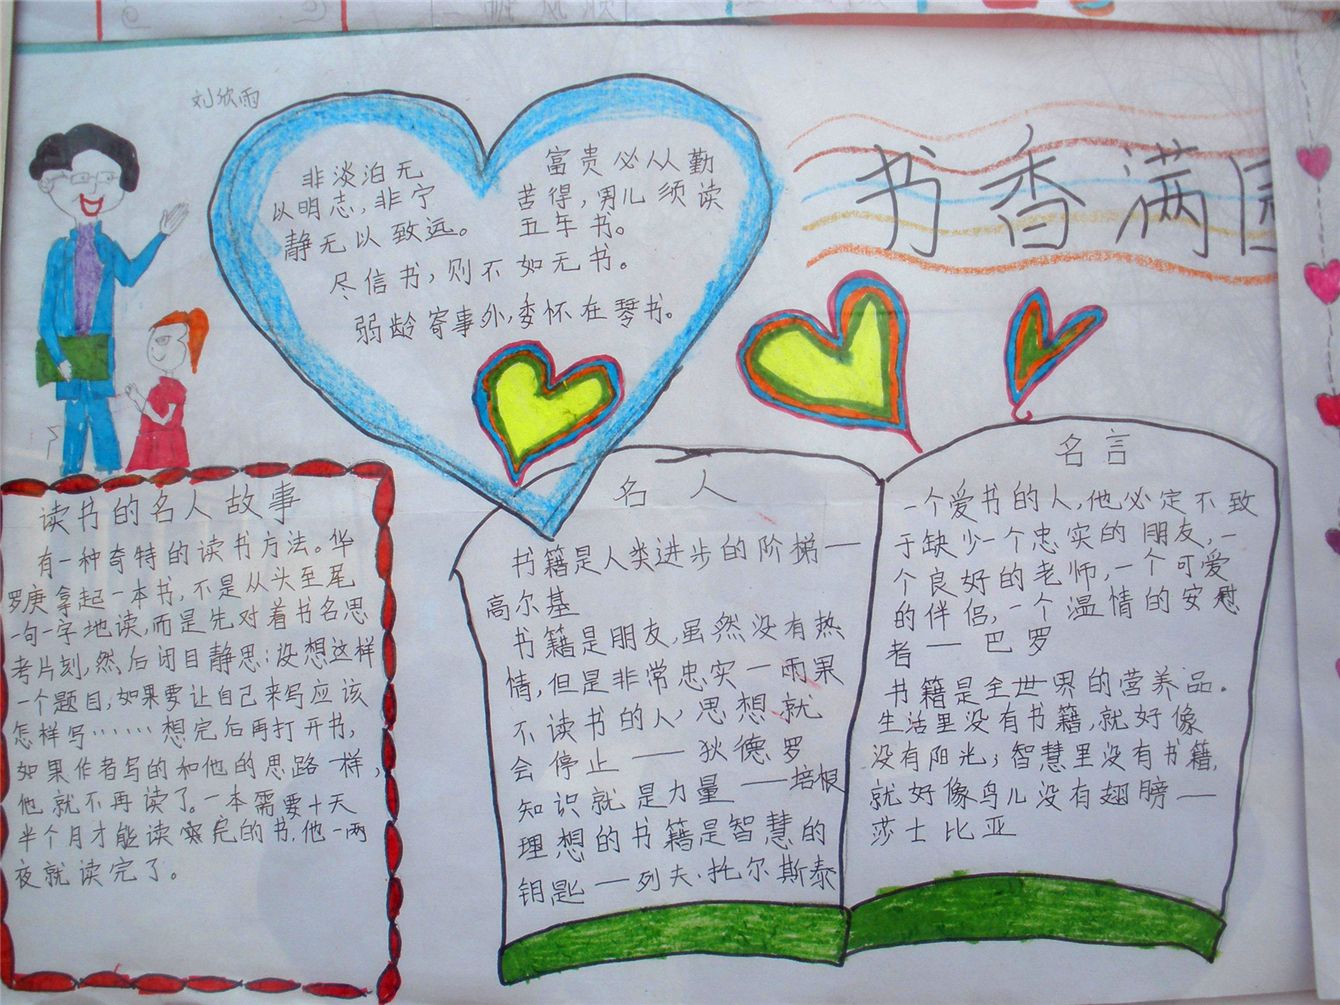 刘欣雨
书香满园
非淡泊无
以明志,非宁
静无以致远。
富贵必从勤
苦得,男儿须读
五车书。
尽信书,则不如无书。
弱龄寄事外,委怀在琴书。
读书的名人故事
有一种奇特的读书方法。华
罗庚拿起一本书,不是从头至尾
一句一字地读,而是先对着书名思
考片刻,然后闭目静思:设想这样
一个题目,如果要让自己来写应该
怎样写……想完后再打开书,
如果作者写的和他的思路一样,
他就不再读了。一本需要十天
半个月才能读完的书,他一两
夜就读完了。
名人
书籍是人类进步的阶梯—
高尔基
书籍是朋友,虽然没有热
情,但是非常忠实—雨果
不读书的人,思想就
会停止——狄德罗
知识就是力量——培根
理想的书籍是智慧的
钥匙—列夫·托尔斯泰
名言
一个爱书的人,他必定不致
于缺少一个忠实的朋友,一
个良好的老师,一个可爱
的伴侣,一个温情的安慰
者—巴罗
书籍是全世界的营养品。
生活里没有书籍,就好像
没有阳光;智慧里没有书籍,
就好像鸟儿没有翅膀—
莎士比亚